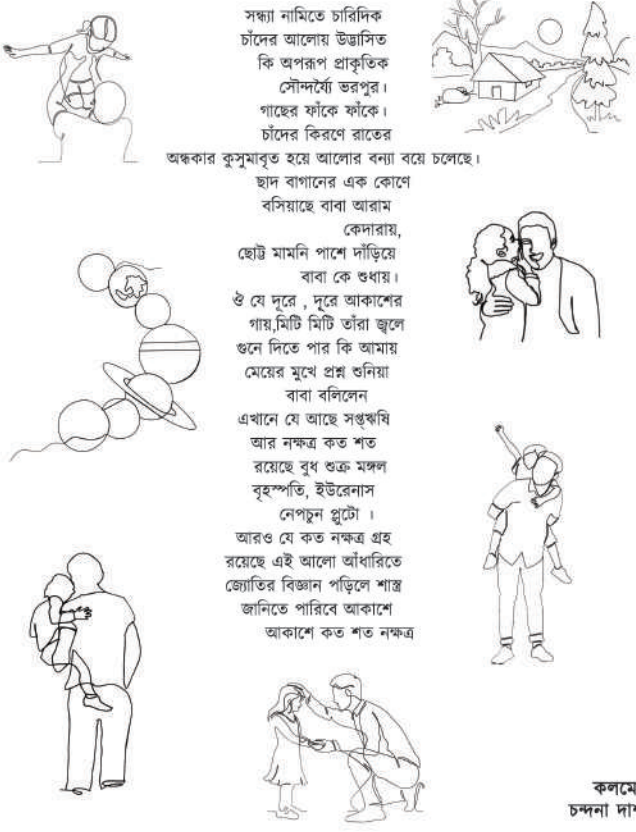 সন্ধ্যা নামিতে চারিদিক
চাঁদের আলোয় উদ্ভাসিত
কি অপরূপ প্রাকৃতিক
সৌন্দর্য্যে ভরপুর।
গাছের ফাঁকে ফাঁকে।
চাঁদের কিরণে রাতের
অন্ধকার কুসুমাবৃত হয়ে আলোর বন্যা বয়ে চলেছে।
ছাদ বাগানের এক কোণে
বসিয়াছে বাবা আরাম
কেদারায়,
ছোট্ট মামনি পাশে দাঁড়িয়ে
বাবা কে শুধায়।
ঔ যে দূরে , দূরে আকাশের
গায়,মিটি মিটি তাঁরা জ্বলে
গুনে দিতে পার কি আমায়
মেয়ের মুখে প্রশ্ন শুনিয়া
বাবা বলিলেন
এখানে যে আছে সপ্তঋষি
আর নক্ষত্র কত শত
রয়েছে বুধ শুক্র মঙ্গল
বৃহস্পতি, ইউরেনাস
নেপচুন প্লুটো ।
আরও যে কত নক্ষত্র গ্রহ
রয়েছে এই আলো আঁধারিতে
জ্যোতির বিজ্ঞান পড়িলে শাস্ত্র
জানিতে পারিবে আকাশে
আকাশে কত শত নক্ষত্র
কলমে
চন্দনা